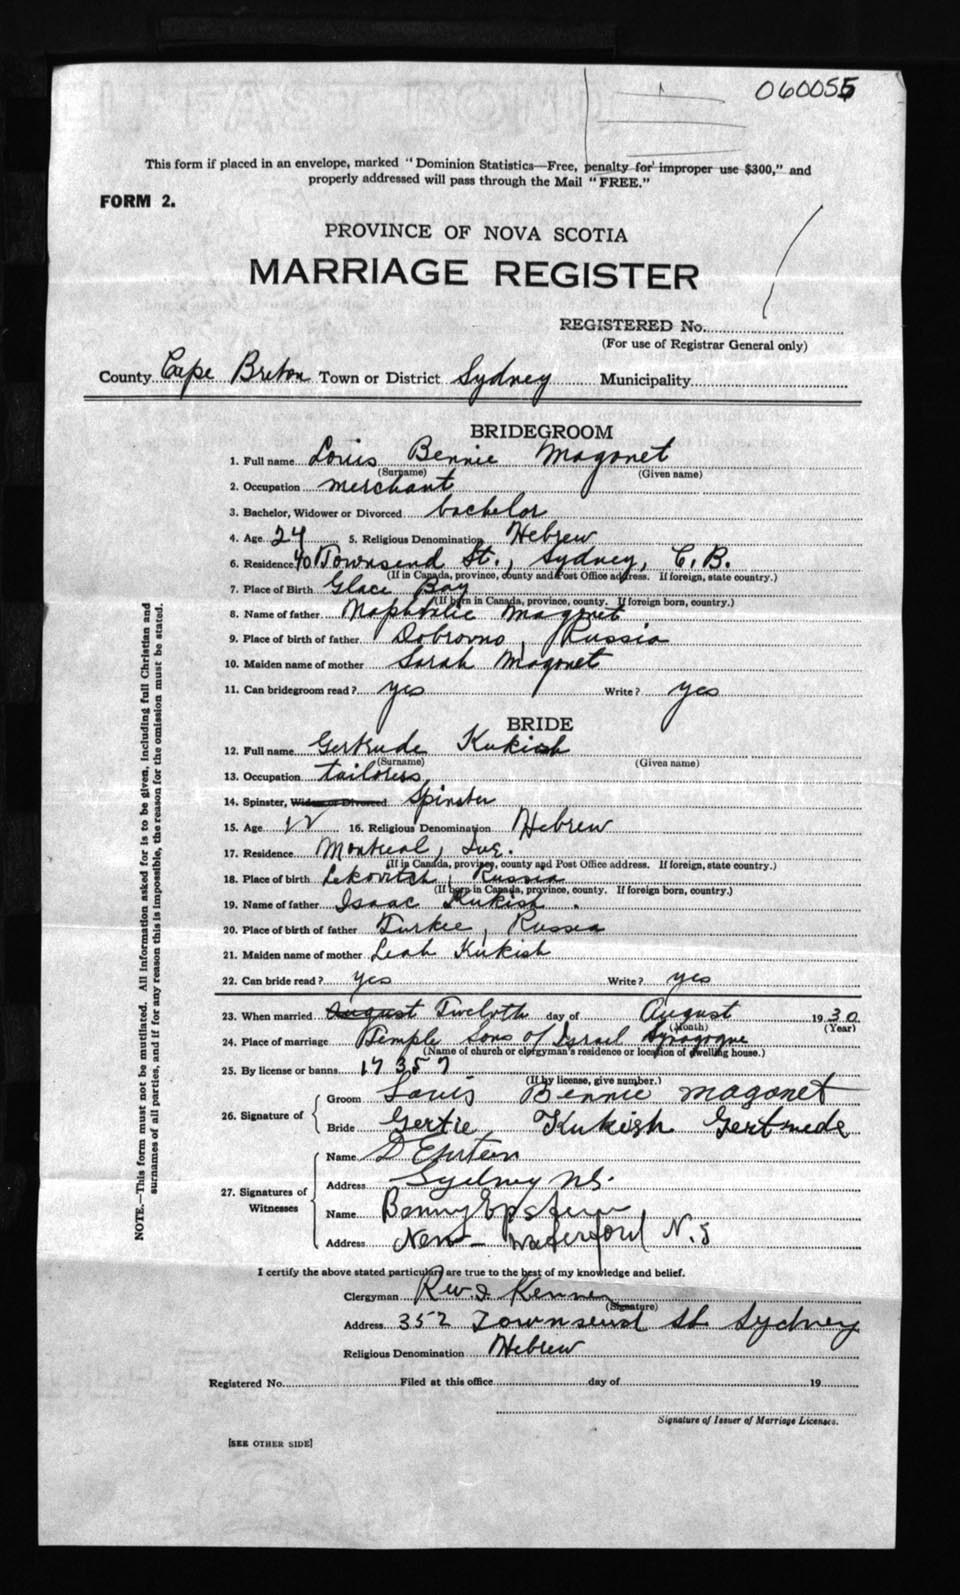 060055
This form if placed in an envelope, marked "Dominion Statistics—Free, penalty for improper use $300," and
properly addressed will pass through the Mail "FREE."
FORM 2.
PROVINCE OF NOVA SCOTIA
MARRIAGE REGISTER
REGISTERED No.
(For use of Registrar General only)
County Cape Breton Town or District Sydney Municipality
BRIDEGROOM
1. Full name Louis Bennie Magonet
(Surname) (Given name)
2. Occupation merchant
3. Bachelor, Widower or Divorced bachelor
4. Age 24 5. Religious Denomination Hebrew
6. Residence 40 Townsend St., Sydney, C.B.
(If in Canada, province, county and Post Office address. If foreign, state country.)
7. Place of Birth Glace Bay
(If born in Canada, province, county. If foreign born, country.)
8. Name of father Magonet
9. Place of birth of father Dobrovno, Russia
10. Maiden name of mother Sarah Magonet
11. Can bridegroom read? yes Write? yes
BRIDE
12. Full name Gertrude Kukish
(Surname) (Given name)
13. Occupation tailoress
14. Spinster, Widow or Divorced Spinster
15. Age 16. Religious Denomination Hebrew
17. Residence Montreal, Que.
(If in Canada, province, county and Post Office address. If foreign, state country.)
18. Place of birth Lekovitch, Russia
(If born in Canada, province, county. If foreign born, country.)
19. Name of father Isaac Kukish.
20. Place of birth of father Turkee, Russia
21. Maiden name of mother Leah Kukish
22. Can bride read? yes Write? yes
23. When married August Twelvth day of August 1930
(Month) (Year)
24. Place of marriage Temple Sons of Israel Synagogue
(Name of church or clergyman's residence or location of dwelling house.)
25. By license or banns 17357
(If by license, give number.)
26. Signature of
Groom Louis Bennie Magonet
Bride Gertie Kukish Gertrude
27. Signatures of Witnesses
Name D Epstein
Address Sydney N.S.
Name Benny Epstein
Address New Waterford N.S
I certify the above stated particulars are true to the best of my knowledge and belief.
Clergyman Rev. I. Kenner
(Signature)
Address 352 Townsend St. Sydney
Religious Denomination Hebrew
Registered No. Filed at this office day of 19
Signature of Issuer of Marriage Licenses.
[SEE OTHER SIDE]
NOTE.—This form must not be mutilated. All information asked for is to be given, including full Christian and
surnames of all parties, and if for any reason this is impossible, the reason for the omission must be stated.